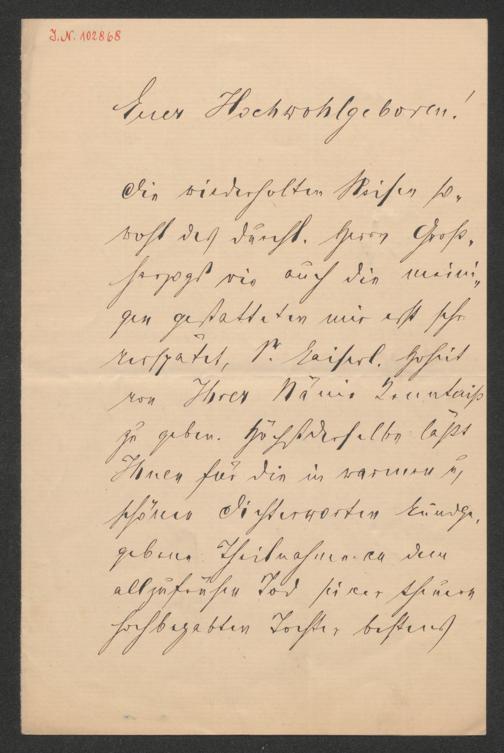 J.N. 102868
Euer Hochwohlgeboren!
Die wiederholten Reisen so-
wohl des durchl. Herrn Groß-
herzogs wie auch die meini-
gen gestatteten mir erst sehr
verspätet, Sr. Kaiserl. Hoheit
von Ihrer Nänie Kenntniß
zu geben. Höchstderselbe läßt
Ihnen für die in warmen u,
schönen Dichterworten kundge-
gebene Theilnahme an dem
allzufrühen Tod seiner theuern
hochbegabten Tochter bestens